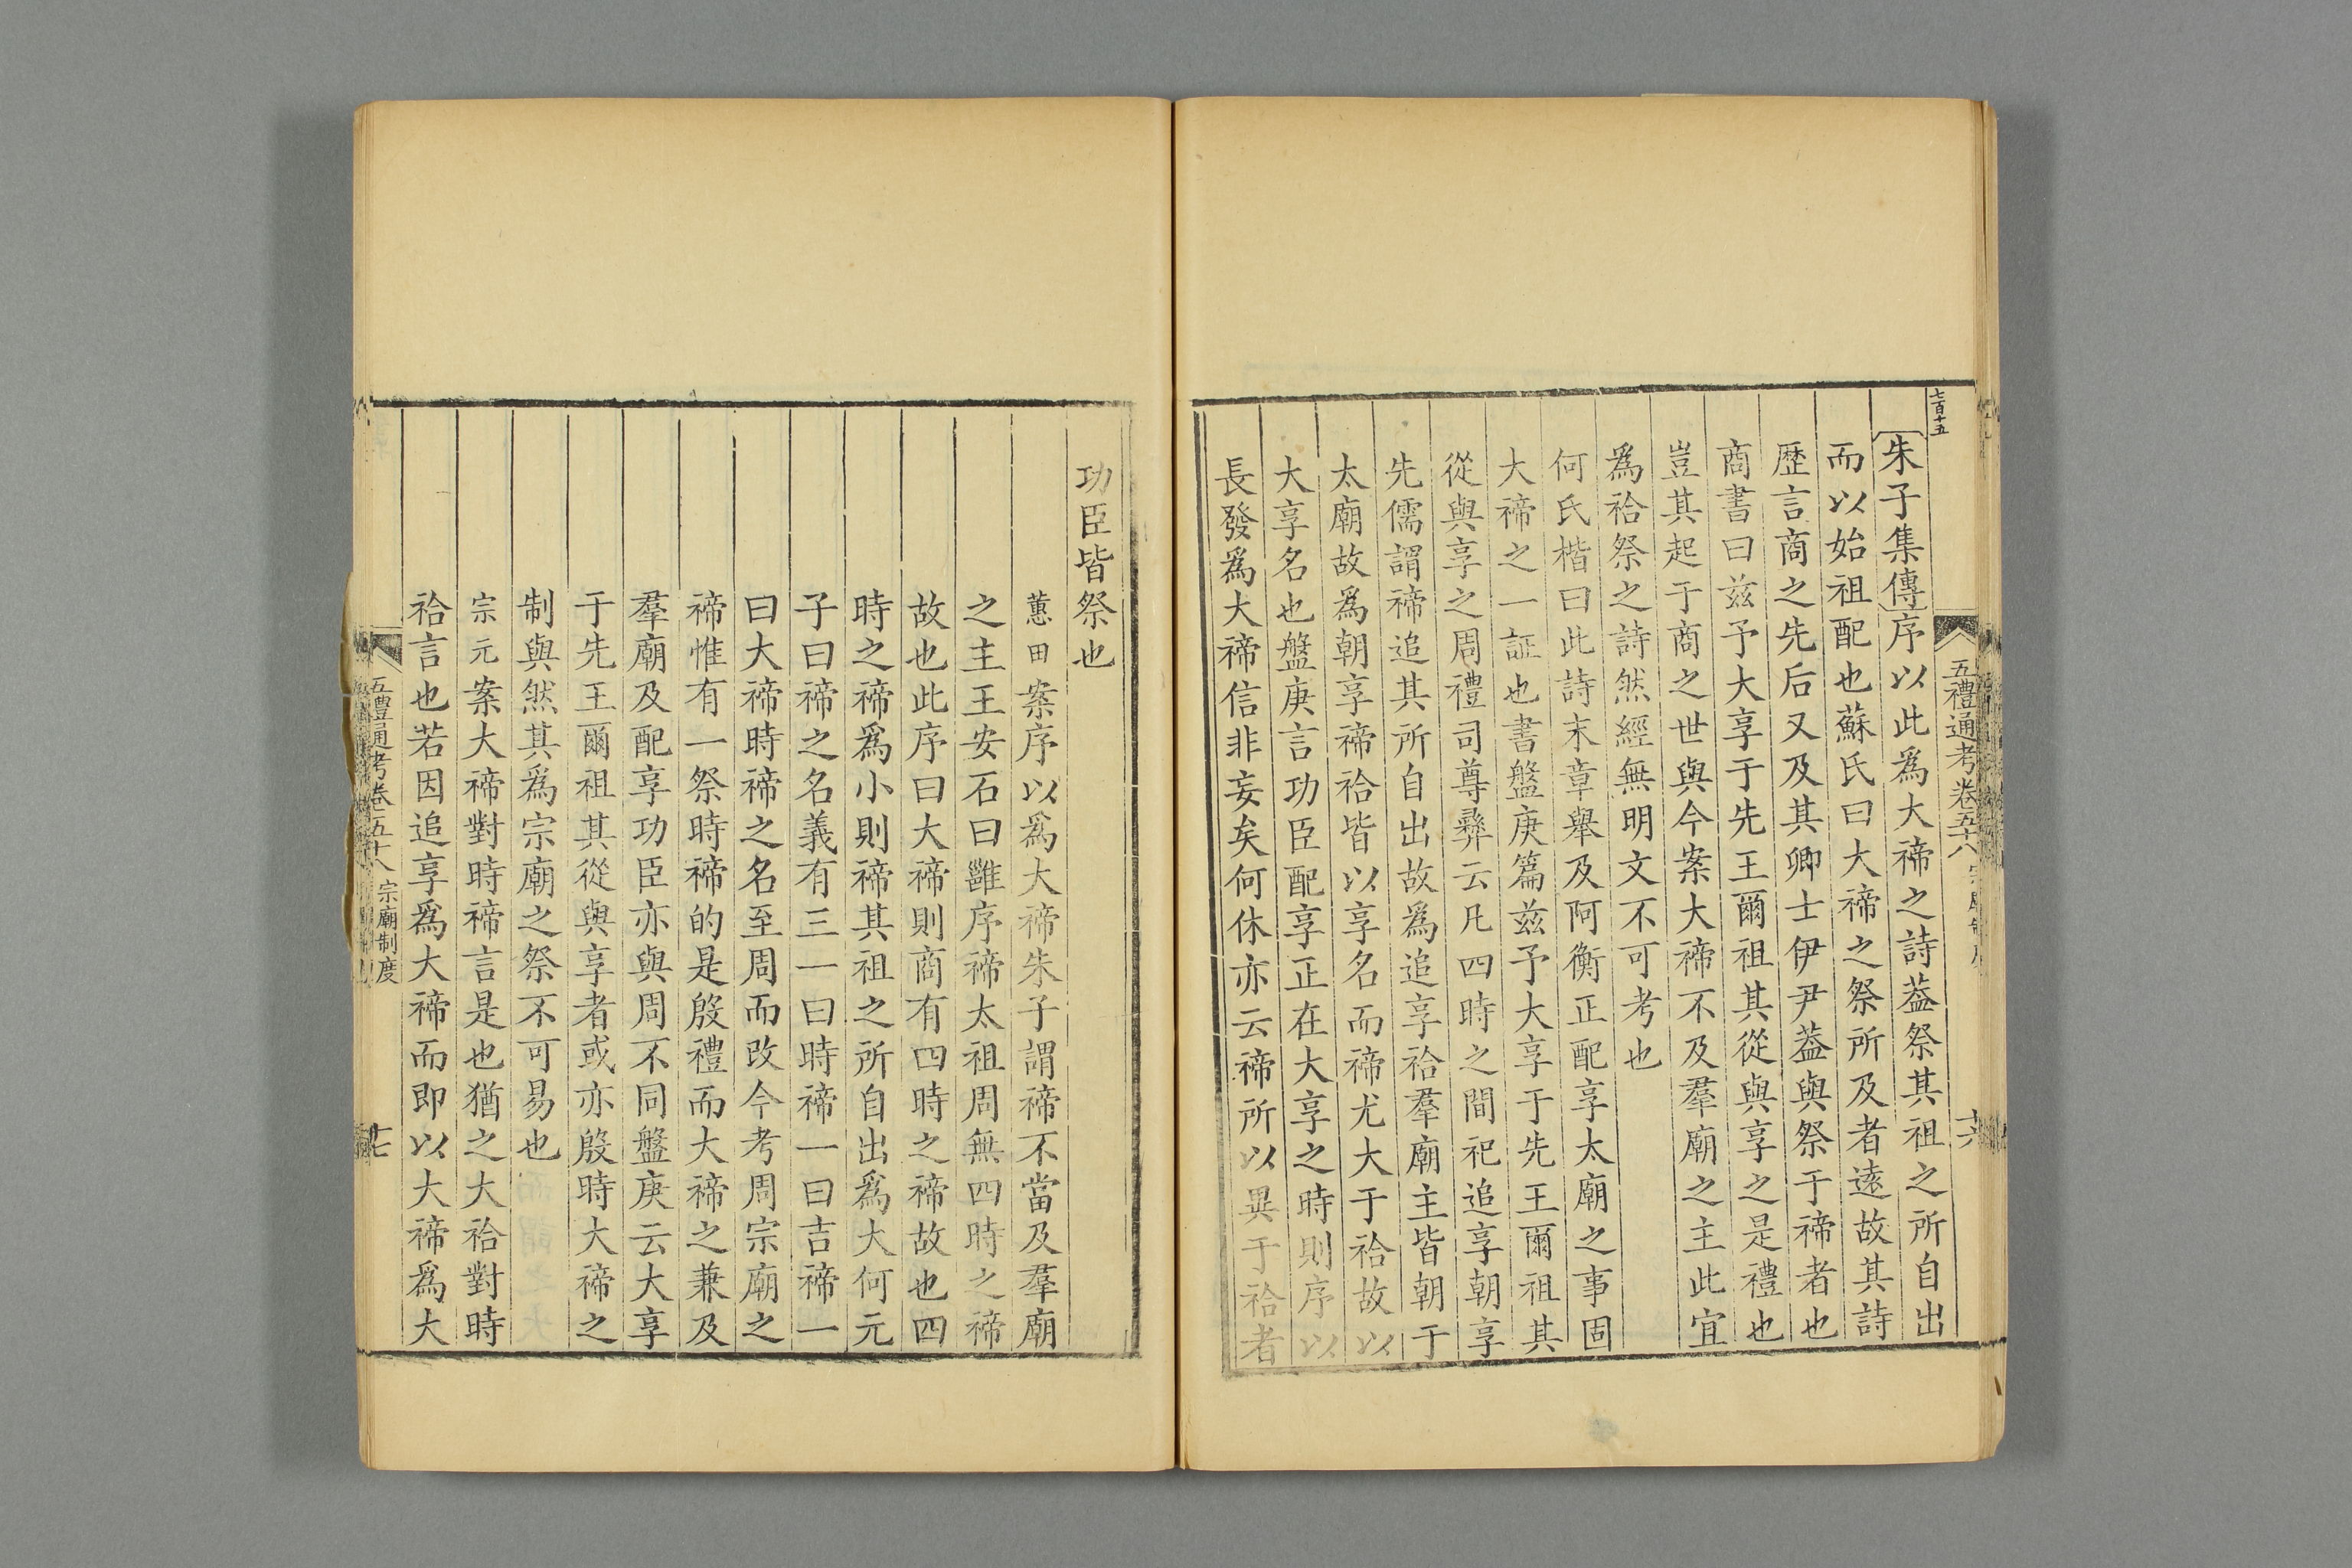 七百十五
五禮通考卷五十八
十六
朱子集傳序以此爲大禘之詩葢祭其祖之所自出
而以始祖配也蘇氏曰大禘之祭所及者遠故其詩
歷言商之先后又及其卿士伊尹葢與祭于禘者也
商書曰兹予大享于先王爾祖其從與享之是禮也
豈其起于商之世與今案大禘不及羣廟之主此宜
爲祫祭之詩然經無明文不可考也
何氏楷曰此詩末章舉及阿衡正配享太廟之事固
大禘之一証也書盤庚篇兹予大享于先王爾祖其
從與享之周禮司尊彝云凡四時之間祀追享朝享
先儒謂禘追其所自出故爲追享祫羣廟主皆朝于
太廟故爲朝享禘祫皆以享名而禘尤大于祫故以
大享名也盤庚言功臣配享正在大享之時則序以
長發爲大禘信非妄矣何休亦云禘所以異于祫者
功臣皆祭也
蕙田案序以爲大禘朱子謂禘不當及羣廟
之主王安石曰雝序禘太祖周無四時之禘
故也此序曰大禘則商有四時之禘故也四
時之禘爲小則禘其祖之所自出爲大何元
子曰禘之名義有三一曰時禘一曰吉禘一
曰大禘時禘之名至周而改今考周宗廟之
禘惟有一祭時禘的是殷禮而大禘之兼及
羣廟及配享功臣亦與周不同盤庚云大享
于先王爾祖其從與享者或亦殷時大禘之
制與然其爲宗廟之祭不可易也
宗元案大禘對時禘言是也猶之大祫對時
祫言也若因追享爲大禘而即以大禘爲大
五禮通考卷五十八 宗廟制度
十七